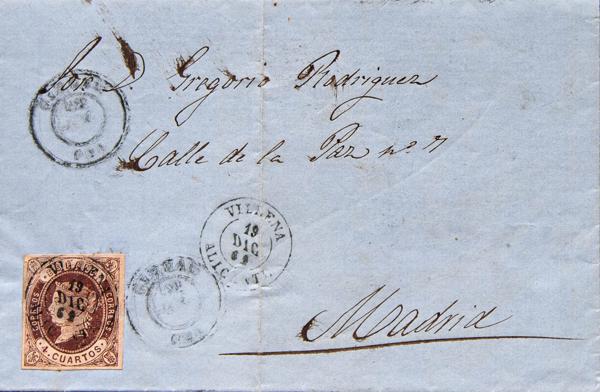 Sor. D. Gregorio Rodriguez
Calle de la Paz nº 7
VILLENA
19
DIC
62
ALICANTE
Madrid
VILLENA
19
DIC
62
CORREOS
CORREOS
4 CUARTOS